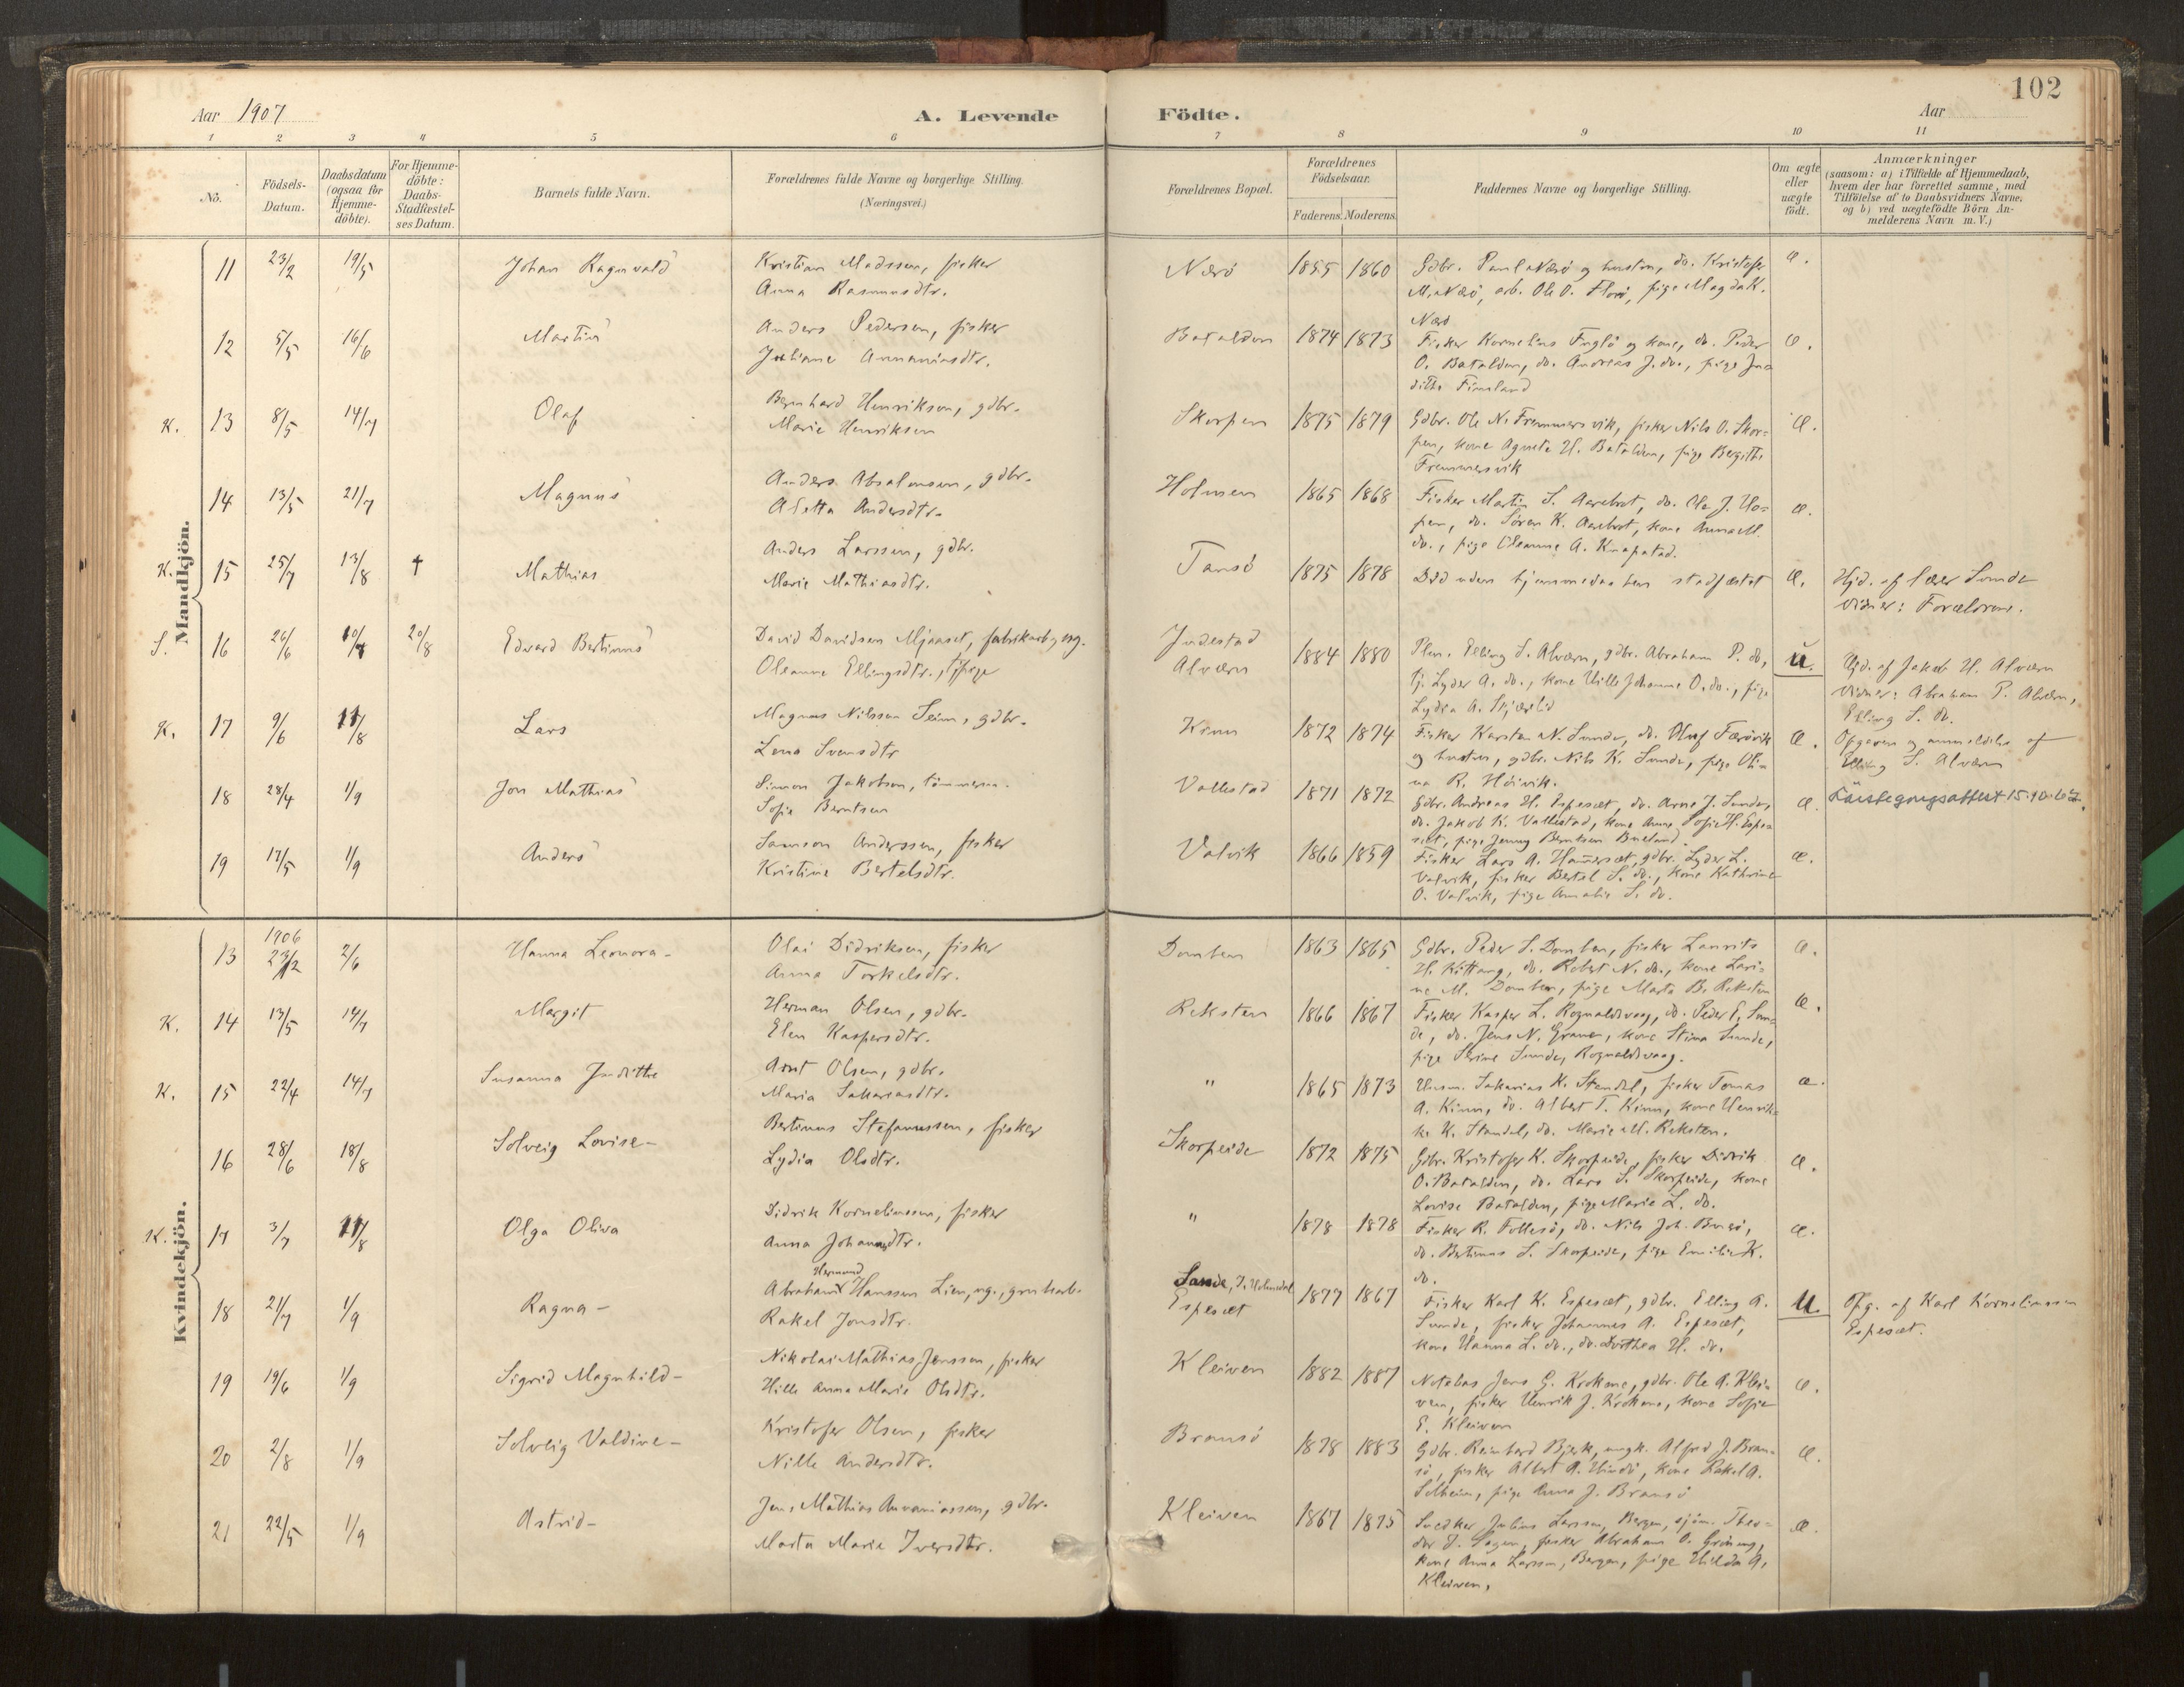 102
Aar 1907
A. Levende
Födte.
Aar
1 2 3 4 5 6 7 8 9 10 11
No.
Födsels-
Datum.
Daabsdatum
(ogsaa for
Hjemme-
döbte).
For Hjemme-
döbte:
Daabs-
Stadfæstel-
ses Datum.
Barnets fulde Navn.
Forældrenes fulde Navne og borgerlige Stilling.
(Næringsvei.)
Forældrenes Bopæl.
Forældrenes
Födselsaar.
Faderens. Moderens.
Faddernes Navne og borgerlige Stilling.
Om ægte
eller
uægte
födt.
Anmærkninger
(saasom: a) i Tilfælde af Hjemmedaab,
hvem der har forrettet samme, med
Tilföielse af to Daabsvidners Navne.
og b) ved uægtefödte Börn An-
melderens Navn m. V.)
Mandkjön.
11 23/2 19/5 Johan Ragnvald Kristian Madssen, fisker Nærö 1855 1860 Gdbr. Paul Nærö og hustru, do. Kristofer æ.
Anna Rasmusdtr. M. Nærö, arb. Ole O. Florö, pige Magda K.
Nærö
12 5/5 16/6 Martin Anders Pedersen, fisker Batalden 1874 1873 Fisker Kornelius Fuglö og kone, do. Peder æ.
Juliane Annaniasdtr. O. Batalden, do. Andreas J. do., pige Ju-
dithe Fimland
K. 13 8/5 14/7 Olaf Bernhard Henriksen, gdbr. Skorpen 1875 1879 Gdbr. Ole N. Fremmersvik, fisker Nils O. Skor- æ.
Marie Henriksen pen, kone Agneta H. Batalden, pige Bergithe
Fremmersvik
14 13/5 21/7 Magnus Anders Absalonsen, gdbr. Holmen 1865 1868 Fisker Martin S. Aarebrot, do. Ole J. Ho- æ.
Aletta Andersdtr. pen, do. Sören K. Aarebrot, kone Anna M.
do., pige Oleanne A. Knapstad.
K. 15 25/7 13/8 † Mathias Anders Larssen, gdbr. Tansö 1875 1878 Död uden hjemmedaaben stadfæstet æ. Hjd. af lærer Sunde
Marie Mathiasdtr. Vidner: Forældrene.
S. 16 26/6 10/7 20/8 Edvard Bertinus David Davidsen Mjaaset, fabrikarb. ug. Indestad 1884 1880 Plen. Elling S. Alværn, gdbr. Abraham P. do, u. Hjd. af Jakob H. Alværn
Oleanne Ellingsdtr., tj.pige Alværn tj. Lyder A. do., kone Hille Johanne O. do., pige Vidner: Abraham P. Alværn,
Lydia A. Skjærlid Elling S. do.
K. 17 9/6 11/8 Lars Magnus Nilssen Seim, gdbr. Kinn 1872 1874 Fisker Karsten N. Sunde, do. Oluf Færövik æ. Opgaven og anmeldelse af
Lena Svensdtr og hustru, gdbr. Nils K. Sunde, pige Oli- Elling S. Alværn
na R. Höivik.
18 28/4 1/9 Jon Mathias Simon Jakobsen, tömmerm. Vallestad 1871 1872 Gdbr. Andreas H. Espesæt, do. Arne J. Sunde, æ.
Sofie Berntsen do. Jakob K. Vallestad, kone Anne Sofie H. Espe-
sæt, pige Jenny Berntsen Bueland.
19 17/5 1/9 Anders Samson Anderssen, fisker Valvik 1866 1859 Fisker Lars A. Hammersæt, gdbr. Lyder L. æ.
Kristine Bertelsdtr. Valvik, fisker Bertel S. do., kone Kathrine
O. Valvik, pige Amalie S. do.
Kvindekjön.
1906
13 23/12 2/6 Hanna Leonora Olai Didriksen, fisker Domben 1863 1865 Gdbr. Peder S. Domben, fisker Laurits æ.
Anna Torkelsdtr. H. Kittang, do. Robert N. do., kone Lari-
ne M. Domben, pige Marta B. Reksten
K. 14 13/5 14/7 Margit Herman Olsen, gdbr. Reksten 1866 1867 Fisker Kasper L. Rognaldsvaag, do. Peder P. Sun- æ.
Elen Kaspersdtr. de, do. Jens N. Granen, kone Stina Sunde,
pige Serine Sunde, Rognaldsvaag.
K. 15 22/4 14/7 Susanna Judithe Arnt Olsen, gdbr. " 1865 1873 Husm. Sakarias K. Standal, fisker Tomas æ.
Maria Sakariasdtr. A. Kinn, do. Albert T. Kinn, kone Henrik-
ke K. Standal, do. Marie M. Reksten.
16 28/6 18/8 Solveig Lovise Bertinus Stefanussen, fisker Skorpeide 1872 1875 Gdbr. Kristofer K. Skorpeide, fisker Didrik æ.
Lydia Olsdtr. O. Batalden, do. Lars S. Skorpeide, kone
Lovise Batalden, pige Marie L. do.
K. 17 3/7 11/8 Olga Oliva Didrik Korneliussen, fisker " 1878 1878 Fisker R. Tollesö, do. Nils Joh. Buesö, æ.
Anna Johansdtr. do. Bertinus S. Skorpeide, pige Emilie K.
do.
18 21/7 1/9 Ragna Abraham Hermund Hanssen Lien, ug., grubearb. Sande, J. Holmedal 1877 1867 Fisker Karl K. Espesæt, gdbr. Elling A. u. Opg. af Karl Korneliussen
Rakel Jonsdtr. Espesæt Sunde, fisker Johannes A. Espesæt, Espesæt.
kone Hanna L. do., do. Dorthea H. do.
19 19/6 1/9 Sigrid Magnhild Nikolai Mathias Jenssen, fisker Kleiven 1882 1887 Notebas Jens G. Krokene, gdbr. Ole A. Klei- æ.
Hille Anna Marie Olsdtr. ven, fisker Henrik J. Krokene, kone Sofie
E. Kleiven
20 2/8 1/9 Solveig Valdine Kristofer Olsen, fisker Bransö 1878 1883 Gdbr. Reinhard Bjerk, ungk. Alfred J. Bran- æ.
Nille Andersdtr. sö, fisker Albert A. Hindö, kone Rakel A.
Solheim, pige Anna J. Bransö
21 22/5 1/9 Astrid Jens Mathias Ananiassen, gdbr. Kleiven 1867 1875 Snedker Julius Larssen, Bergen, sjöm. Theo- æ.
Marta Marie Iversdtr. dor J. Sagen, fisker Abraham O. Gröning,
kone Anna Larssen, Bergen, pige Hilda A.
Kleiven.